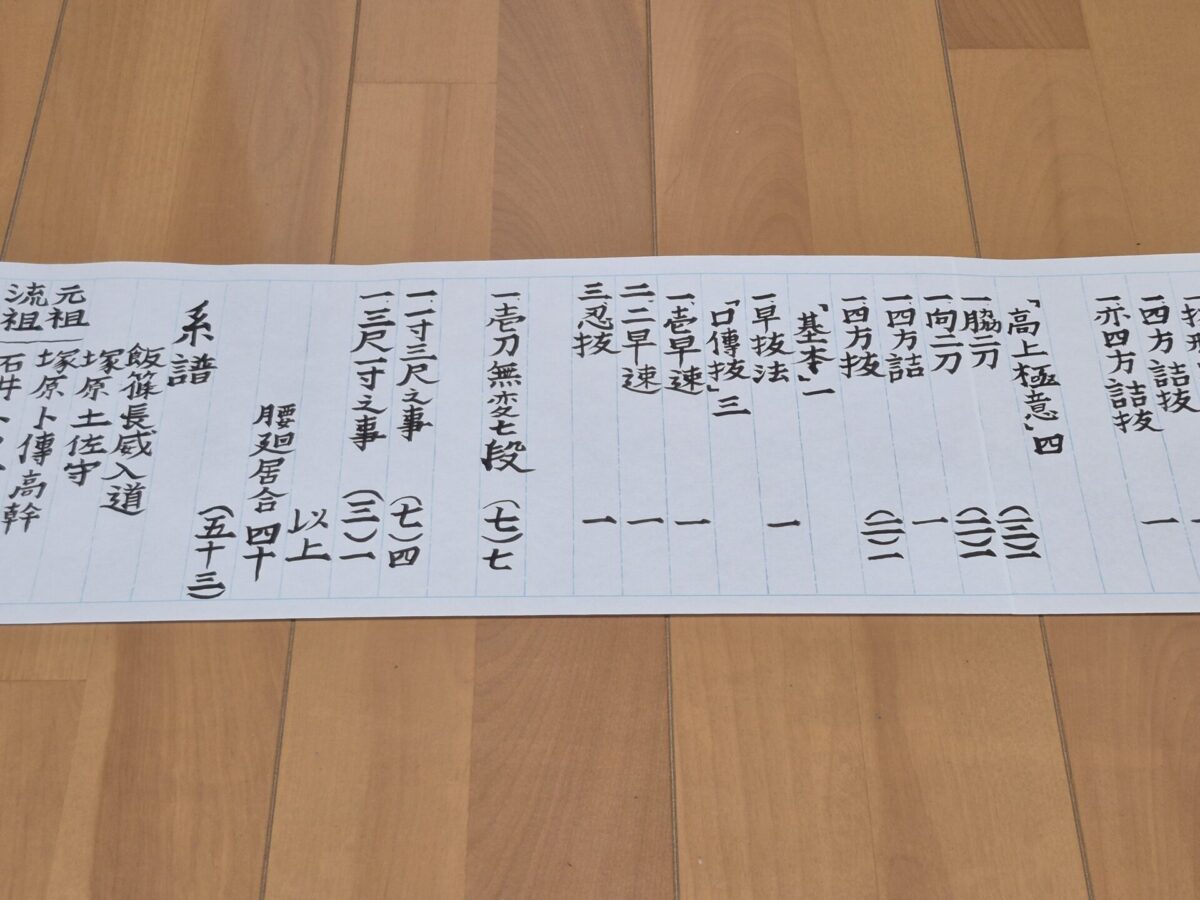 一四方詰抜 一
一亦四方詰抜
「高上極意」四 (三)一
一脇二刀 (二)一
一向二刀 一
一四方詰 (二)一
一四方抜
「基本」一
一早抜法 一
「口傳抜」三
一.壱早速 一
二.二早速 一
三.忍抜 一
一壱刀無変七段 (七)七
一.二寸三尺之事 (七)四
一.三尺一寸之事 (三)一
以上
腰廻居合四十
(五十三)
系譜
飯篠長威入道
塚原土佐守
元祖 塚原卜傳高幹
流祖